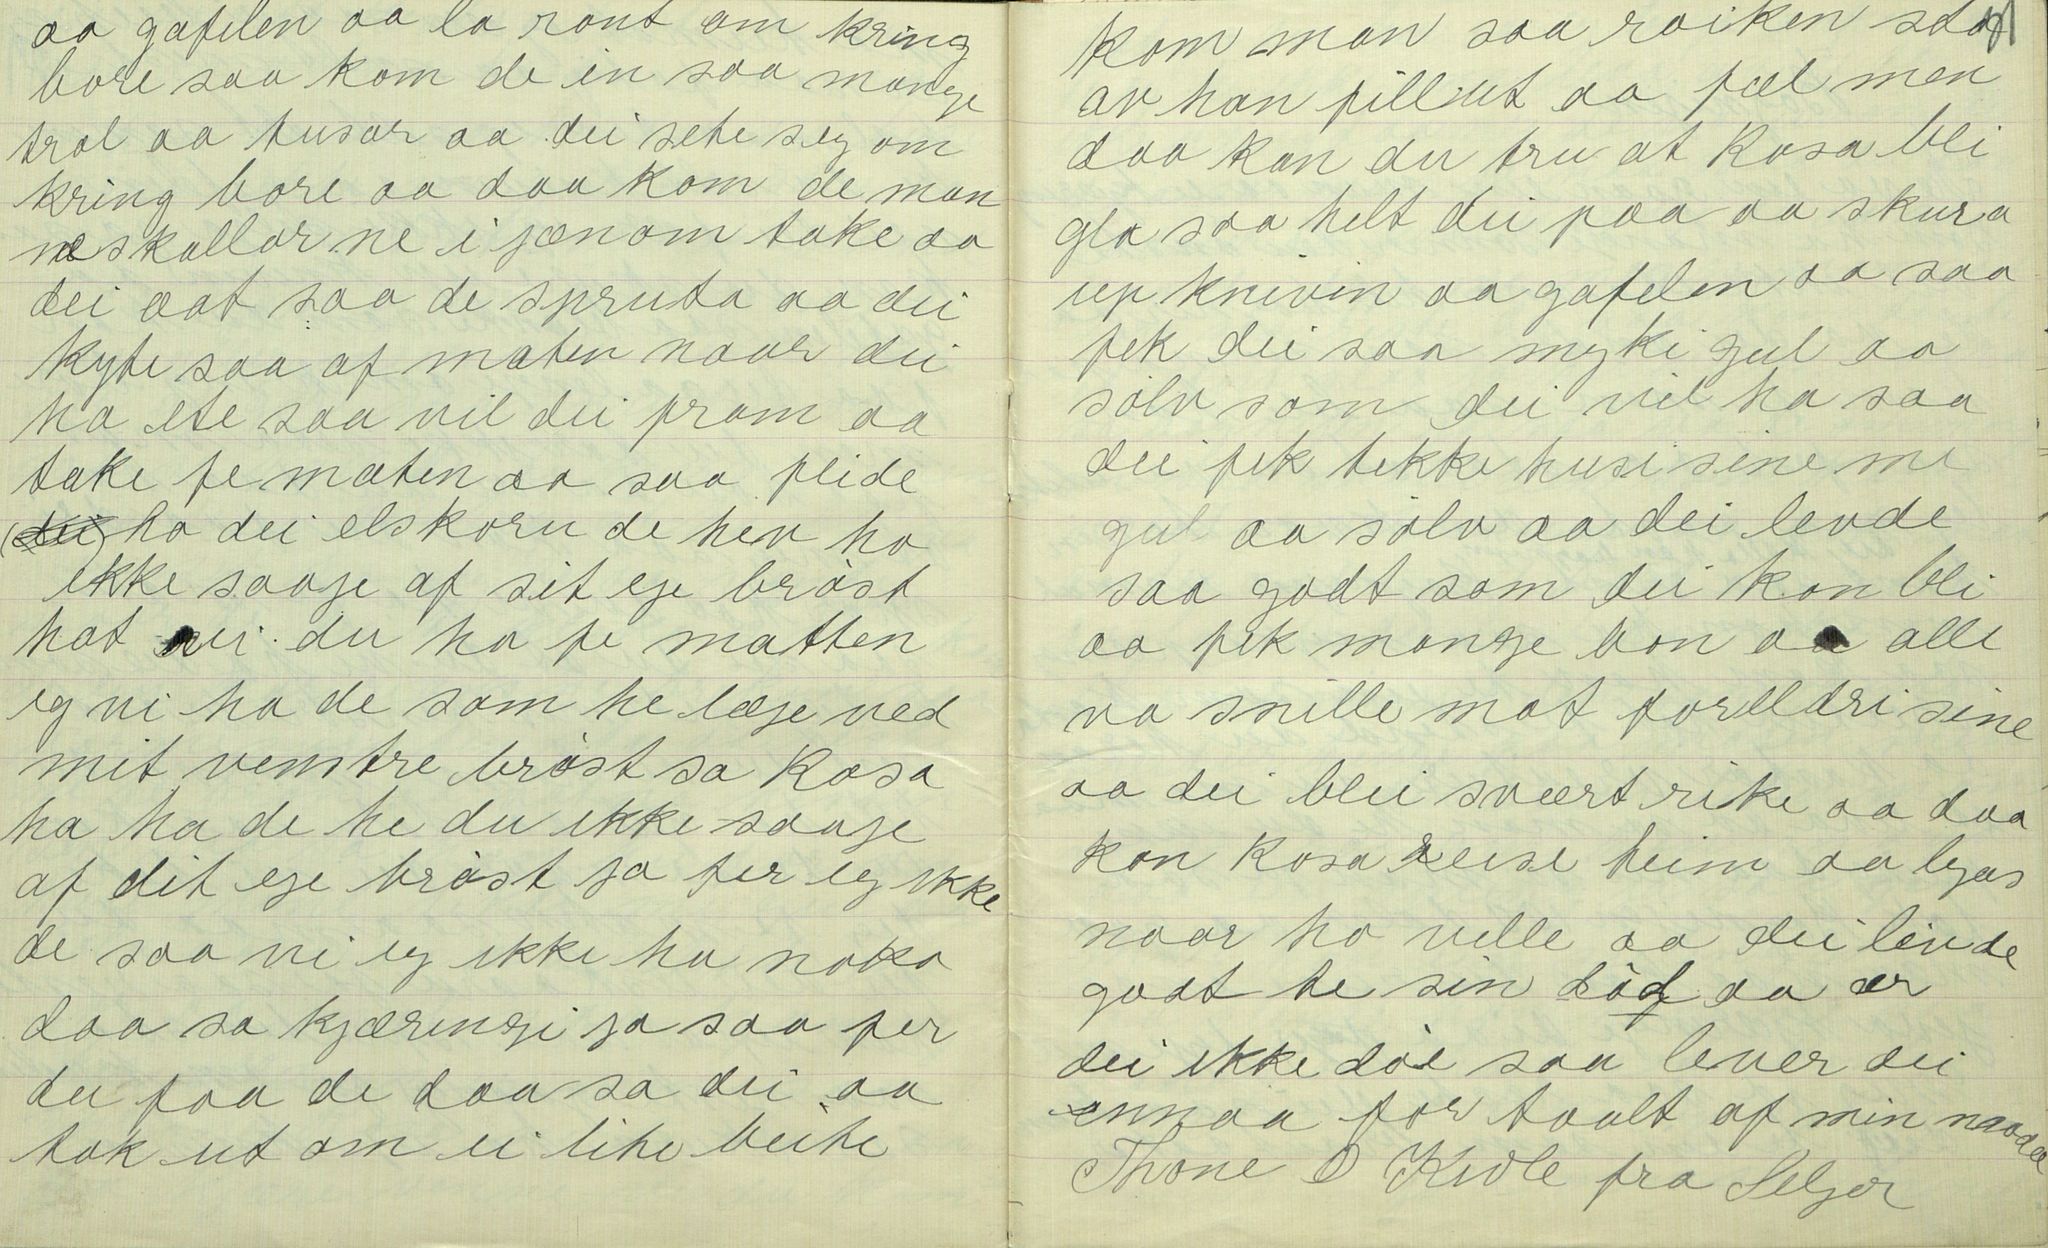 aa gafelen aa la ront om kring
bore saa kom de in saa mange
trol aa tusar aa dei sete seg om
kring bore aa daa kom de man
neskallar ne i jænom take aa
dei aat saa de spruta aa dei
kyte saa af maten naar dei
ha ete saa vil dei fram aa
take fe maten aa saa fleide
(dei) ha dei elskoru de hev ho
ikke saage af sit ege bröst
hot vei du ha fe matten
eg vi ha de som he læge ved
mit venstre bröst sa Kosa
ha ha de he du ikke saage
af dit ege bröst ja fer eg ikke
de saa vi eg ikke ha noko
daa sa kjæringi ja saa fer
du faa de daa sa dei aa
tok ut om ei lite beite
kom man saa roiken stod
av han fillut aa fæl men
daa kan du tru at Kosa blei
gla saa helt dei paa aa skura
up knivin aa gafelen aa saa
fek dei saa myki gul aa
sölv som dei vil ha saa
dei fek tekke husi sine me
gul aa sölv aa dei levde
saa godt som dei kan bli
aa fek mange bon aa alle
va snille mot forelldri sine
aa dei blei svært rike aa daa
kon Kosa reise heim aa lyas
naar ho velle aa dei levde
godt te sin död aa ær
dei ikke döe saa lever dei
ennaa for taalt af min
Thone O Kivle fra Seljor